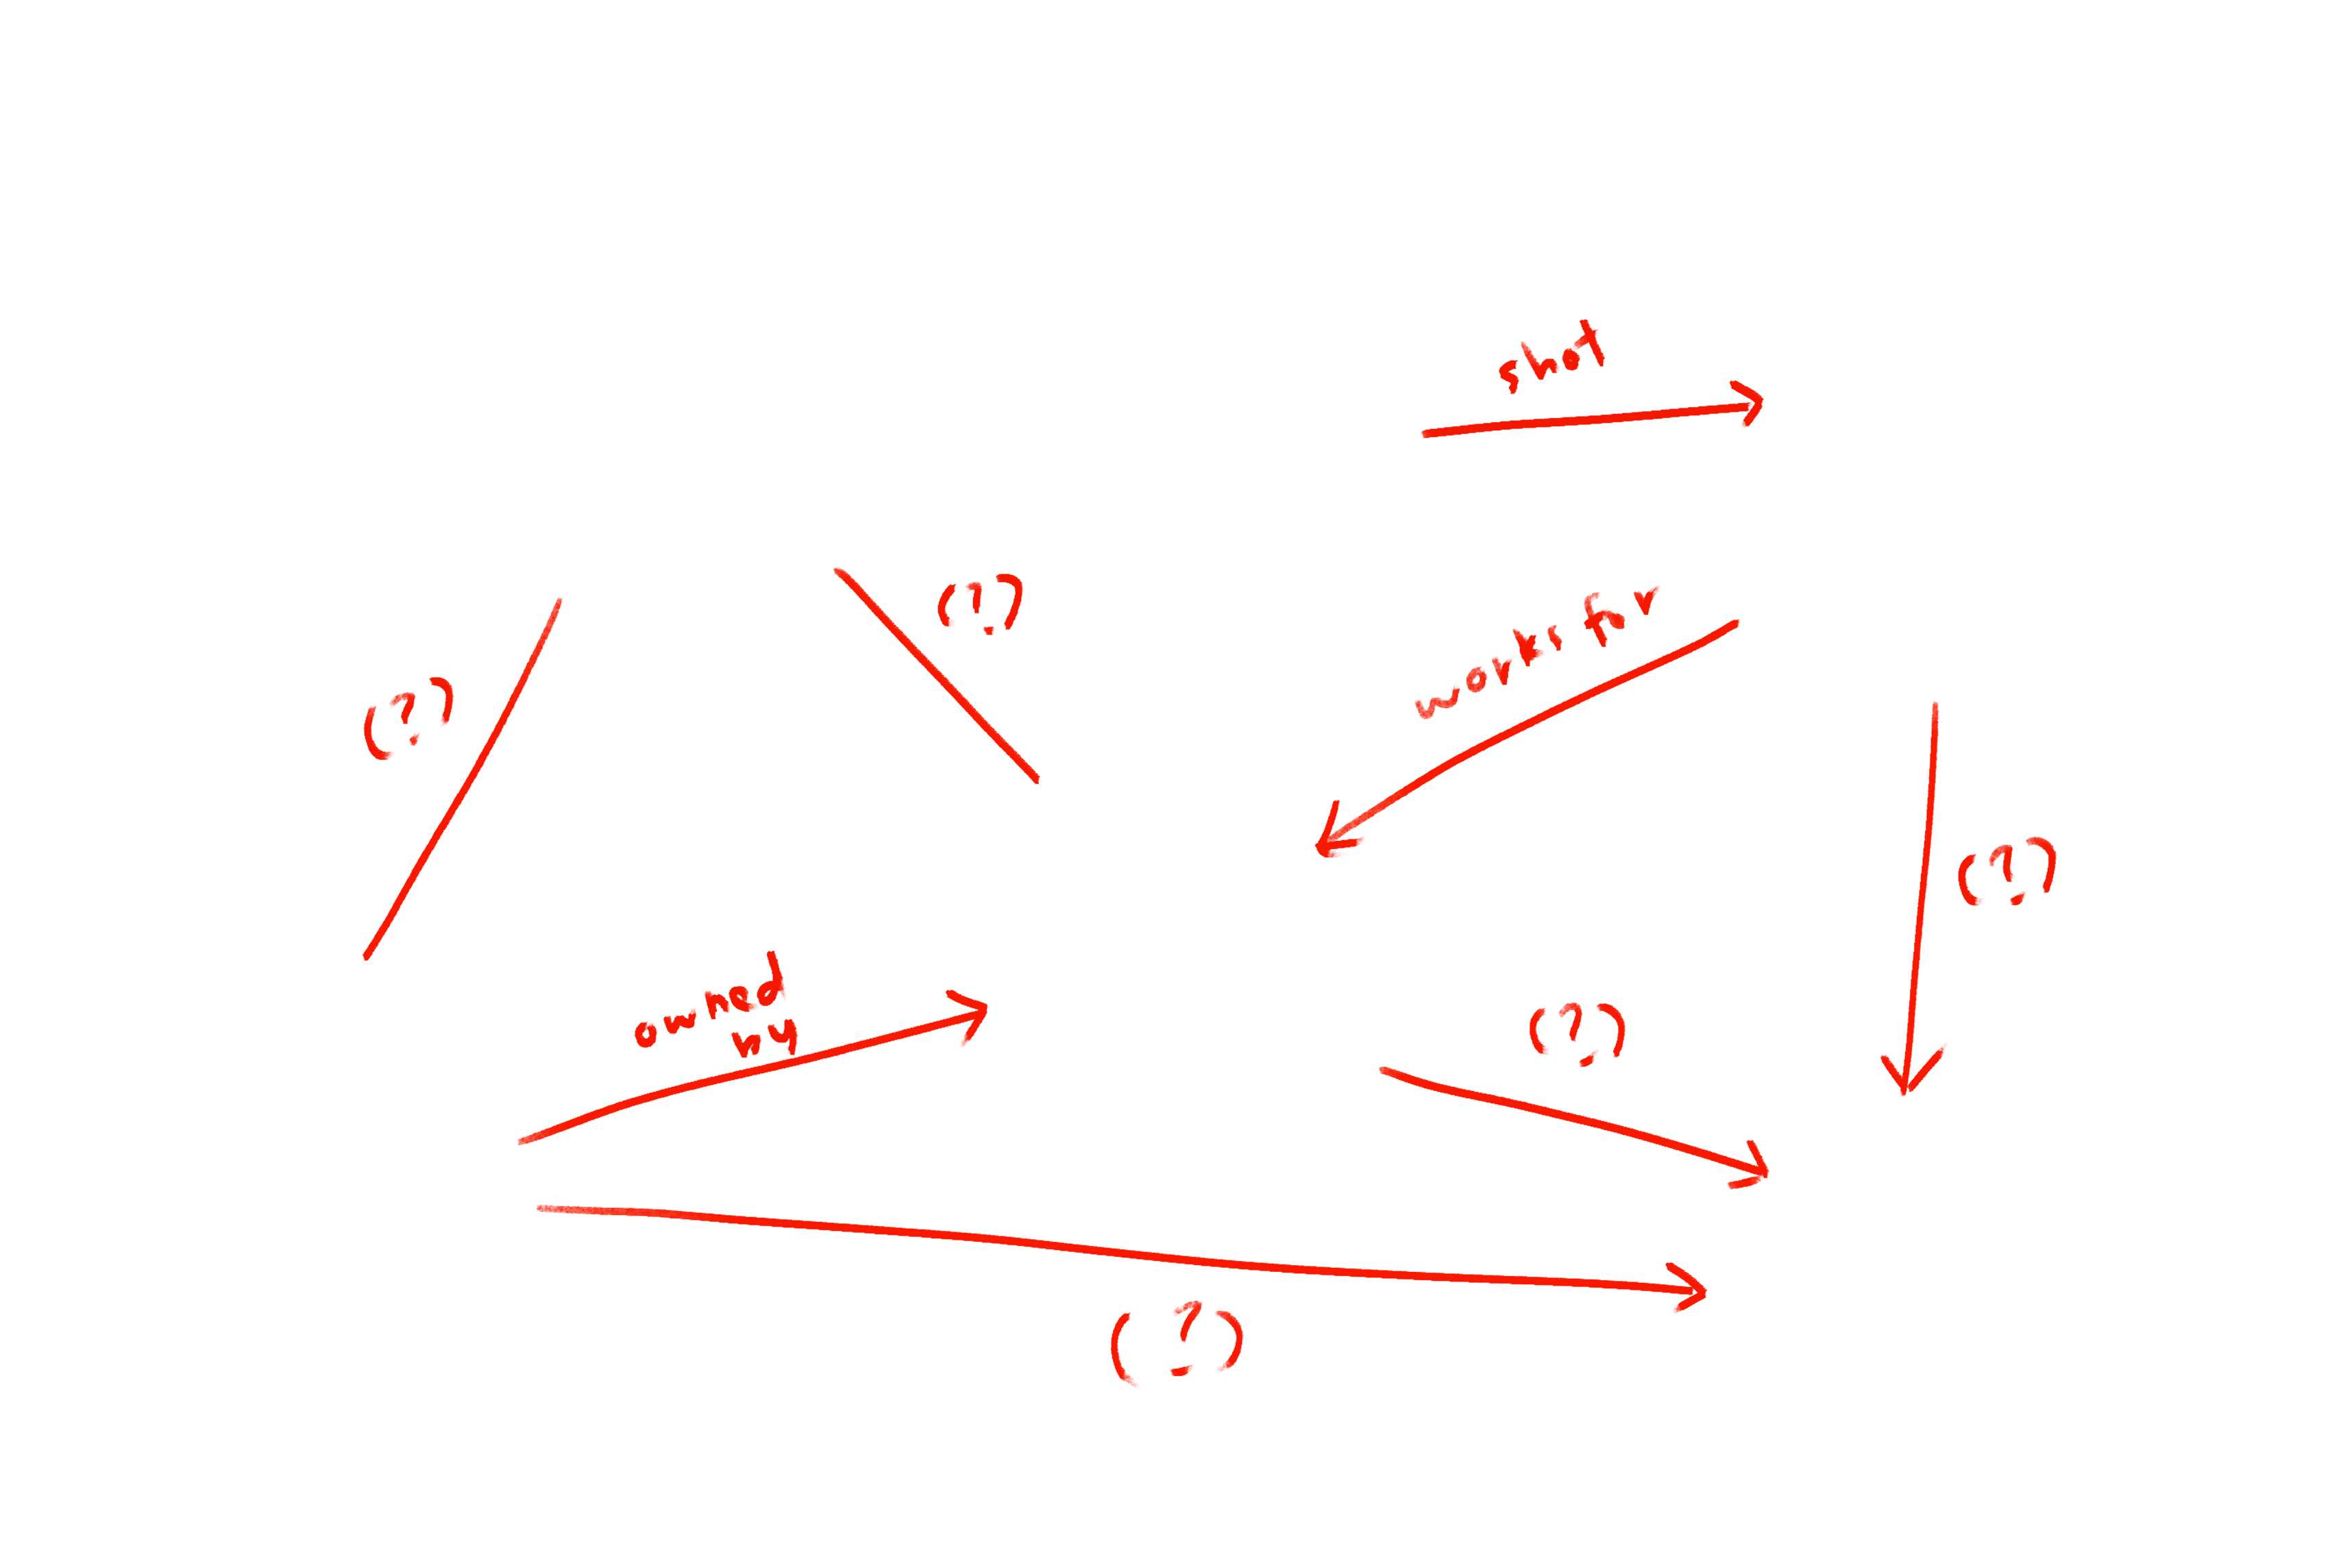 shot
(?)
works for
(?)
(?)
owned
by
(?)
(?)